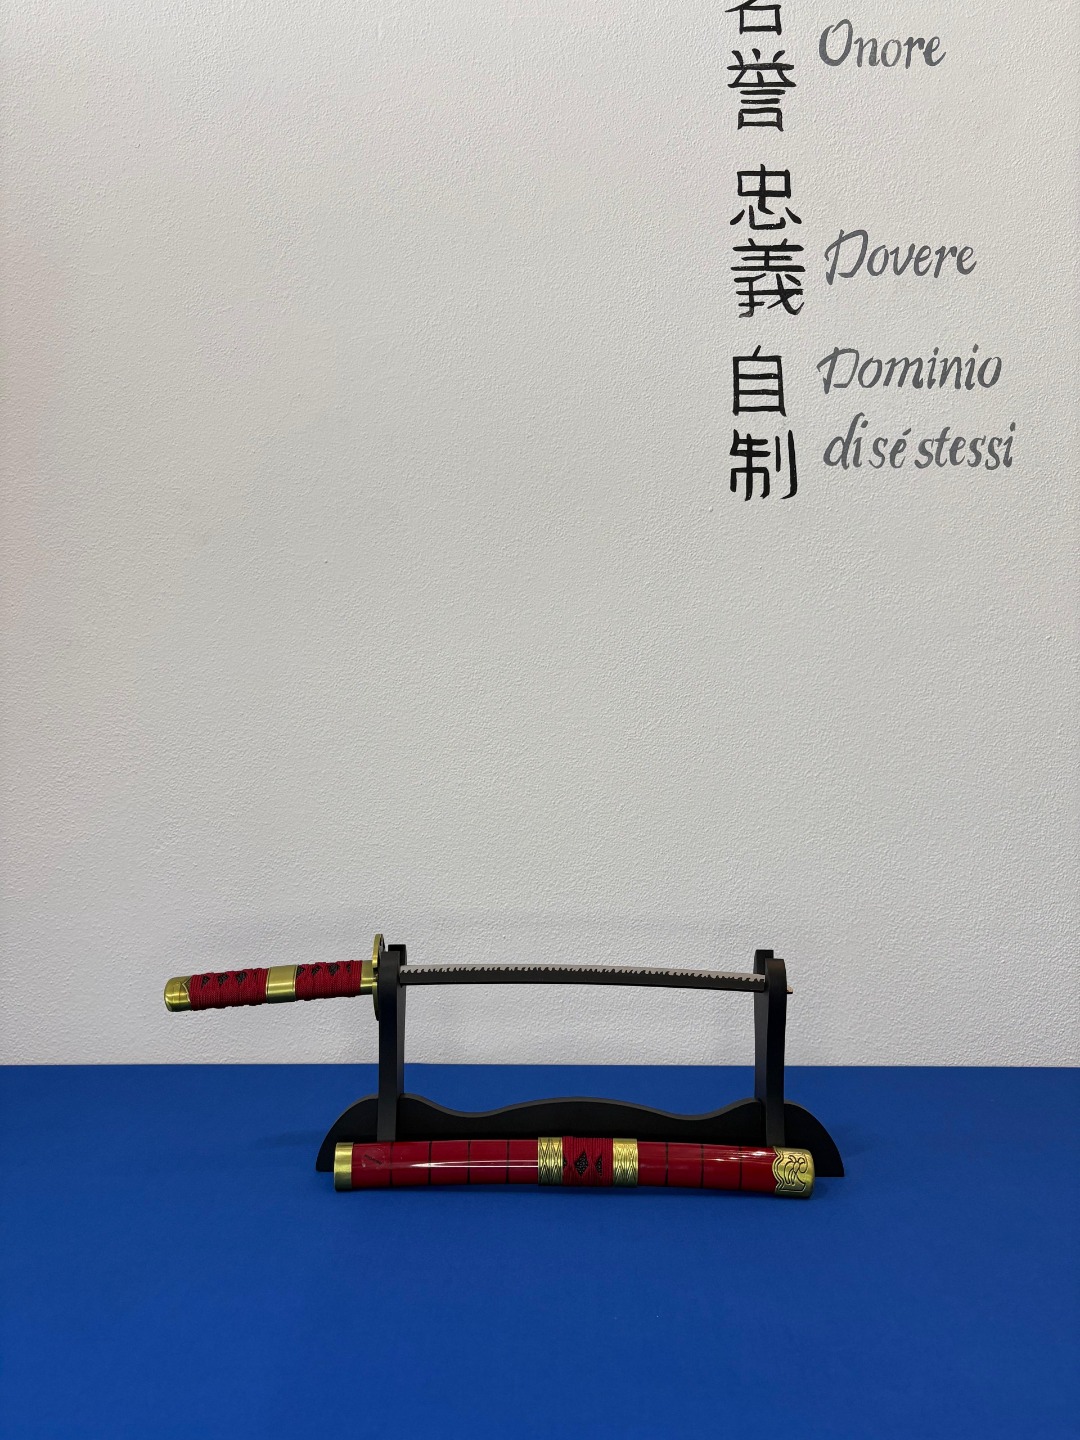 名誉
Onore
忠義
Dovere
自制
Dominio
di sé stessi